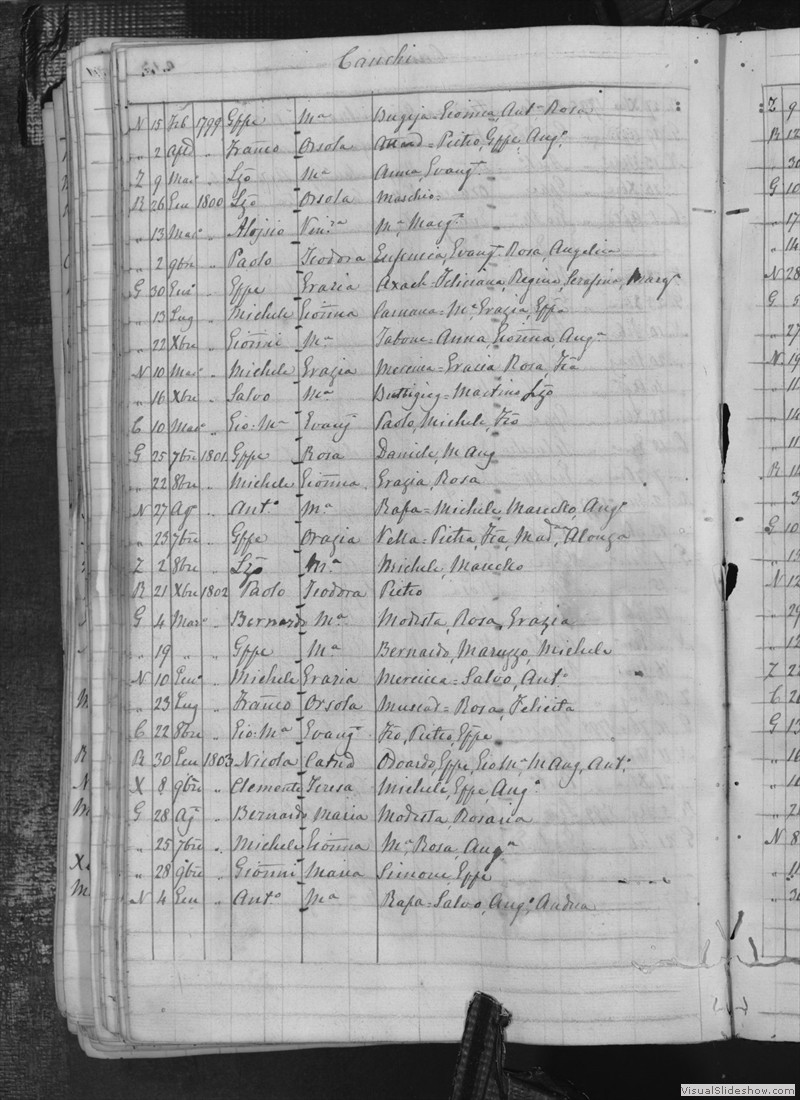 Cauchi
N 15 Feb 1799 Gppe Mª Bugeja = Gionna, Antª Rosa
" 2 apl " Franco Orsola Attard = Pietro, Gppe, Angº
Z 9 Mar " Lzo Mª Anna, Evangª
R 26 Gen 1800 Lzo Orsola Maschio
" 13 Marº " Aloisio Vinrª Mª, Margª
" 2 9bre " Paolo Teodora Eufemia, Evangª Rosa, Angelica
G 30 Genº " Gppe Grazia Axach = Feliciana, Regina, Serafina, Marg
" 13 Lug " Michele Gionna Caruana = Mª Grazia, Gppe
" 22 Xbre " Gionni Mª Tabone = Anna, Gionna, Angª
N 10 Marº " Michele Grazia Mercieca = Gracia Rosa, Fca
" 16 Xbre " Salvo Mª Buttigieg = Martino Lzo
C 10 Marº " Gio: Mª Evangª Paolo, Michele, Fco
G 25 7bre 1801 Gppe Rosa Daniele, M Ang
" 22 8bre " Michele Gionna Grazia, Rosa
N 27 Agº " Antº Mª Rapa = Michele, Marecho, Angº
" 23 7bre " Gppe Orazia Vella = Pietra, Fca, Madª Alonza
Z 2 8bre " Lzo Mª Michele, Marecho
R 21 Xbre 1802 Paolo Teodora Pietro
G 4 Marº " Bernardo Mª Modesta, Rosa, Grazia
" 19 " " Gppe Mª Bernardo, Maruzzo, Michele
N 10 Genº " Michele Grazia Mercieca = Salvo, Antº
" 23 Lug " Franco Orsola Muscat = Rosa, Felicita
C 22 8bre " Gio: Mª Evangª Fco, Pietro, Gppe
R 30 Gen 1803 Nicola Catnd Odoardo, Gppe, Gio Mª, M Ang, Antº
X 8 9bre " Clemente Teresa Michele, Gppe, Angº
G 28 Agº " Bernardo Maria Modesta, Rosaria
" 25 7bre " Michele Gionna Mª, Rosa, Angª
" 28 9bre " Gionni Maria Simone, Gppe
N 4 Gen " Antº Mª Rapa = Salvo, Angº, Andrea
Z 9
R 12
" 30
G 10
" 17
" 14
N 28
G 5
" 27
N 19
" 11
" 14
" 11
R 1
" 3
G 10
" 13
N 12
" 29
" 12
Z 22
C 26
G 13
" 16
" 16
" 21
N 8
" 11
" 30
M
R
N
M
X
M
VisualSlideshow.com